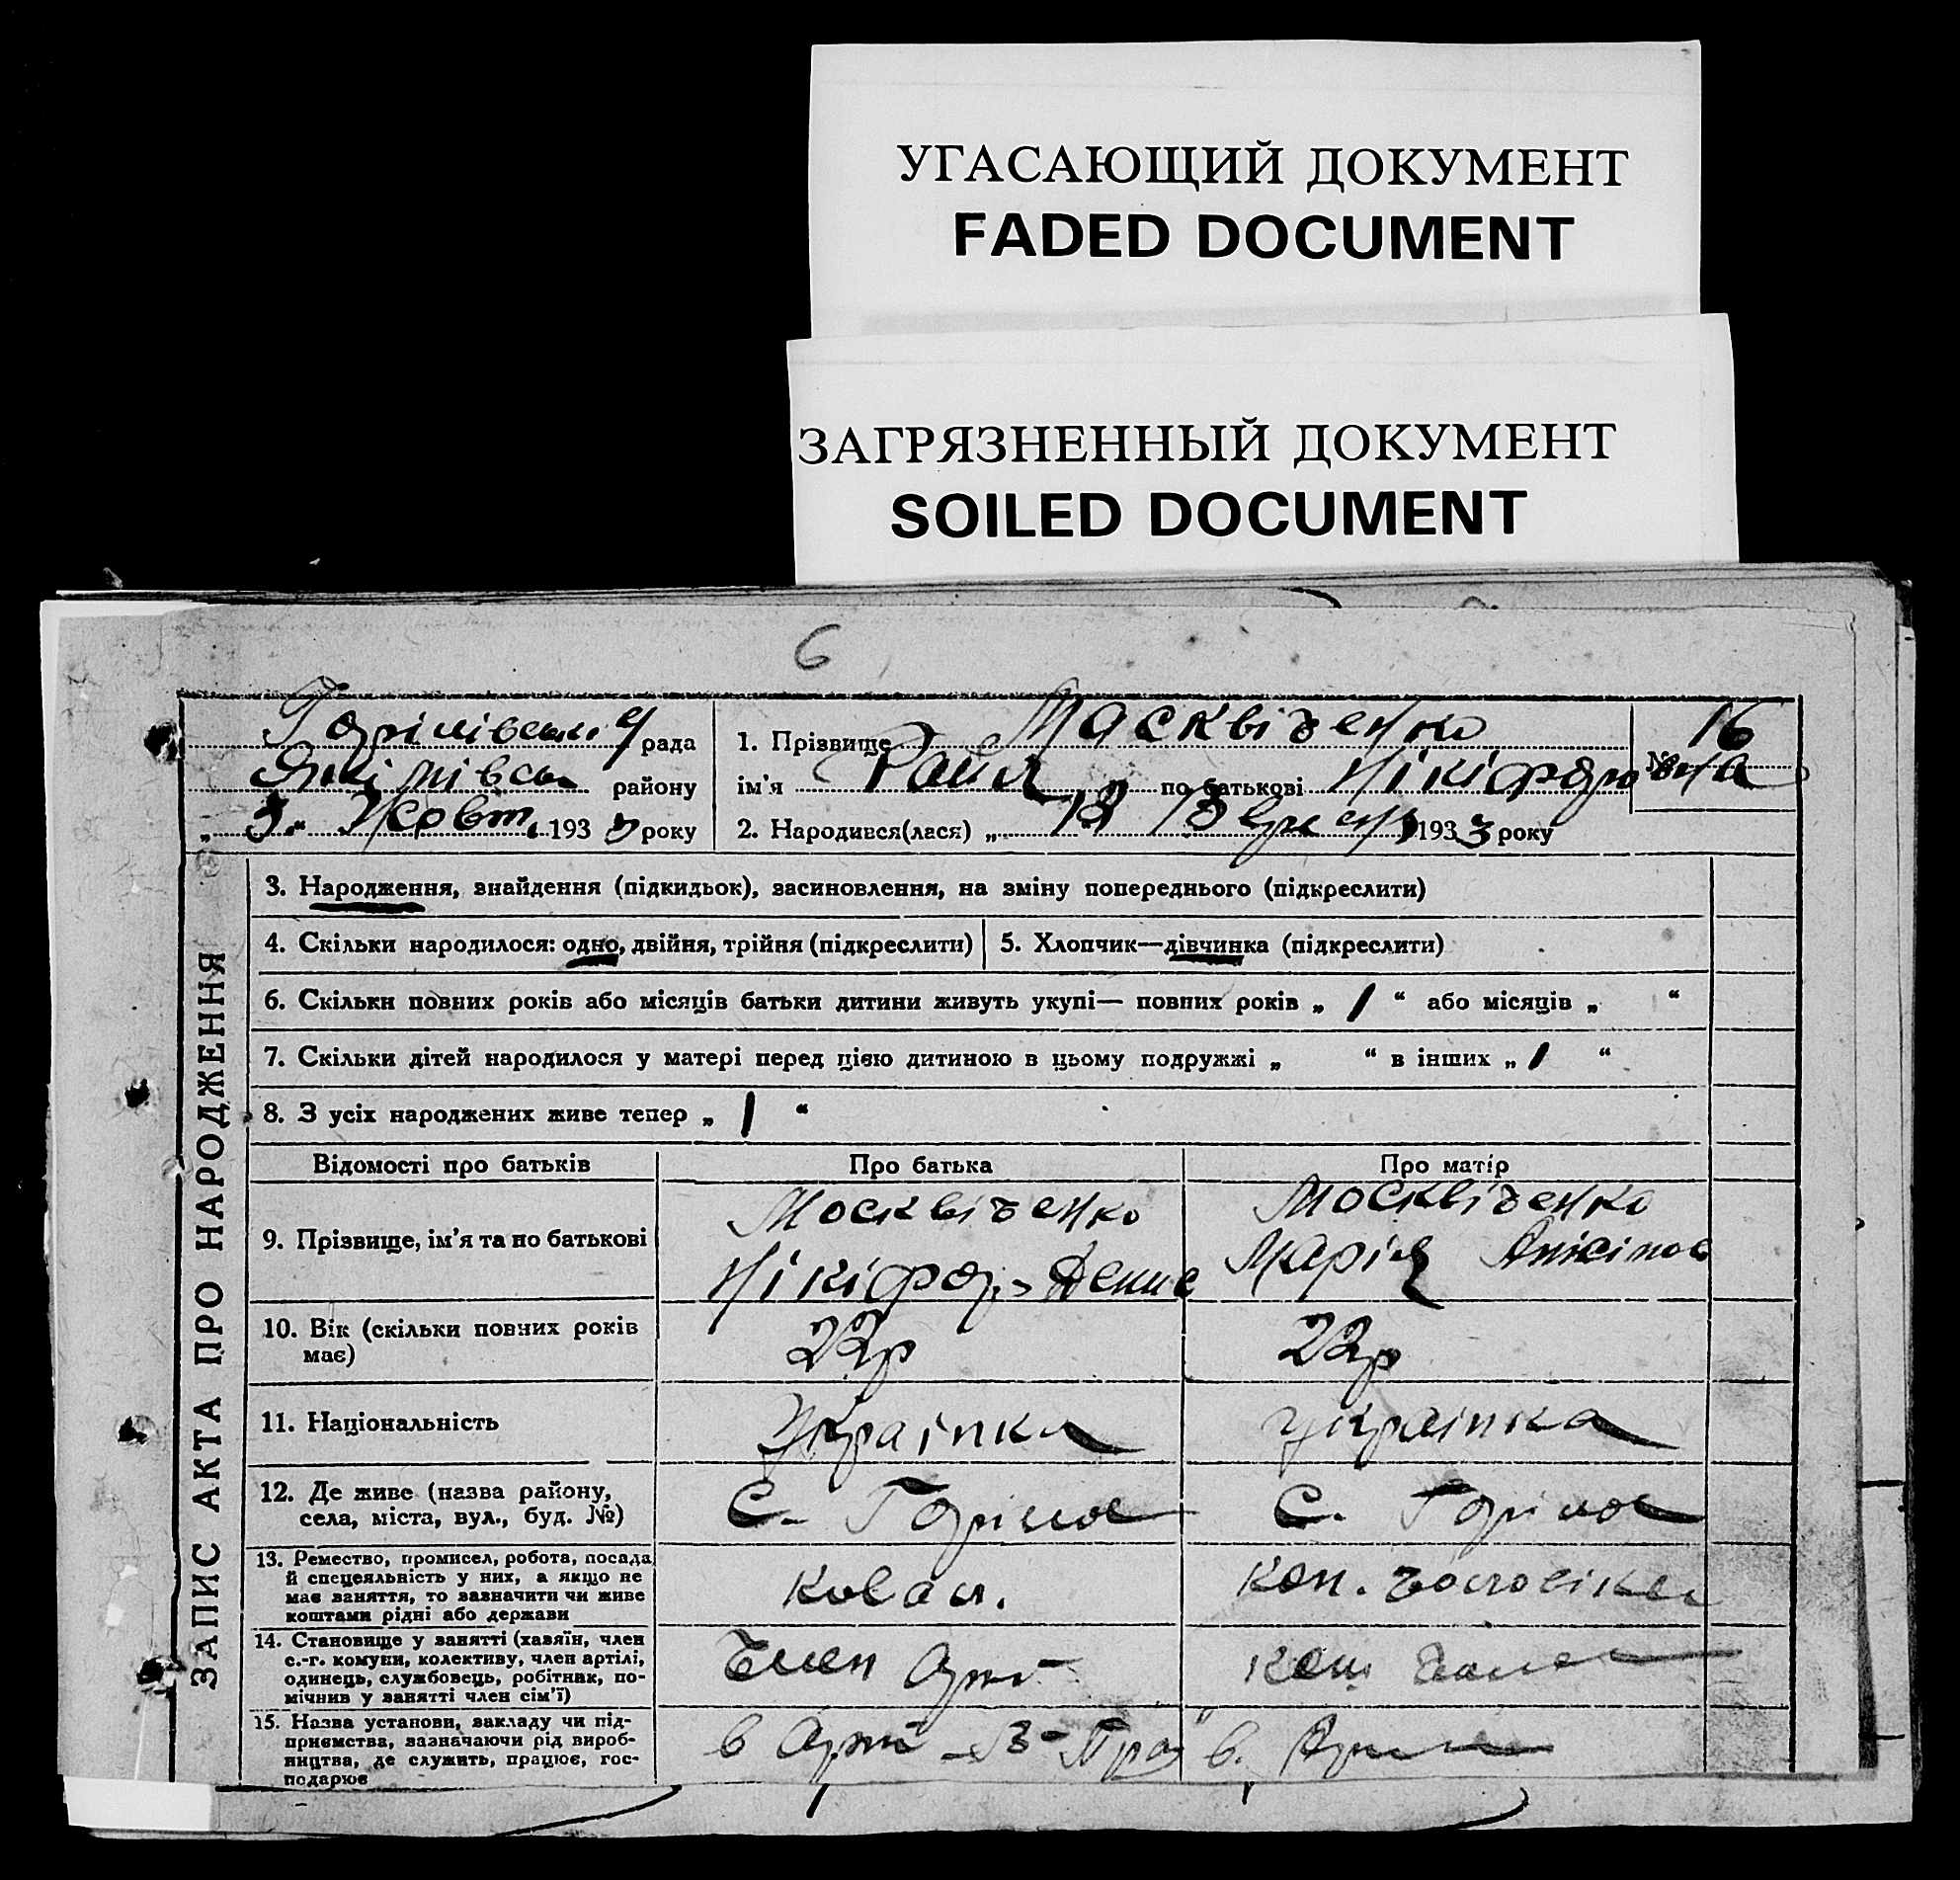 УГАСАЮЩИЙ ДОКУМЕНТ
FADED DOCUMENT
ЗАГРЯЗНЕННЫЙ ДОКУМЕНТ
SOILED DOCUMENT
6
рада
району
„ 3. " Жовт. 1933 року
1. Прізвище Москвіченко
ім'я Раїса по батькові Нікіфоровна
№ 16
2. Народився(лася) „ 12 Вересня 1933 року
ЗАПИС АКТА ПРО НАРОДЖЕННЯ
3. Народження, знайдення (підкидьок), засиновлення, на зміну попереднього (підкреслити)
4. Скільки народилося: одно, двійня, трійня (підкреслити)
5. Хлопчик—дівчинка (підкреслити)
6. Скільки повних років або місяців батьки дитини живуть укупі— повних років „ 1 “ або місяців „ “
7. Скільки дітей народилося у матері перед цією дитиною в цьому подружжі „ “ в інших „ 1 “
8. З усіх народжених живе тепер „ 1 “
Відомості про батьків
Про батька
Про матір
9. Прізвище, ім'я та по батькові
Москвіченко
Нікіфор Денис
Москвіченко
Марія Анісімов
10. Вік (скільки повних років
має)
22р
22р
11. Національність
Українка
українка
12. Де живе (назва району,
села, міста, вул., буд. №)
с.
с.
13. Ремество, промисел, робота, посада
й спецеяльність у них, а якщо не
має заняття, то зазначити чи живе
коштами рідні або держави
Ковал.
14. Становище у занятті (хазяїн, член
с.-г. комуни, колективу, член артілі,
одинець, службовець, робітнак, по-
мічнив у занятті член сім'ї)
Член Арт
15. Назва установи, закладу чи під-
приємства, зазначаючи рід вироб-
ництва, де служить, працює, гос-
подарює
в Арт
в.